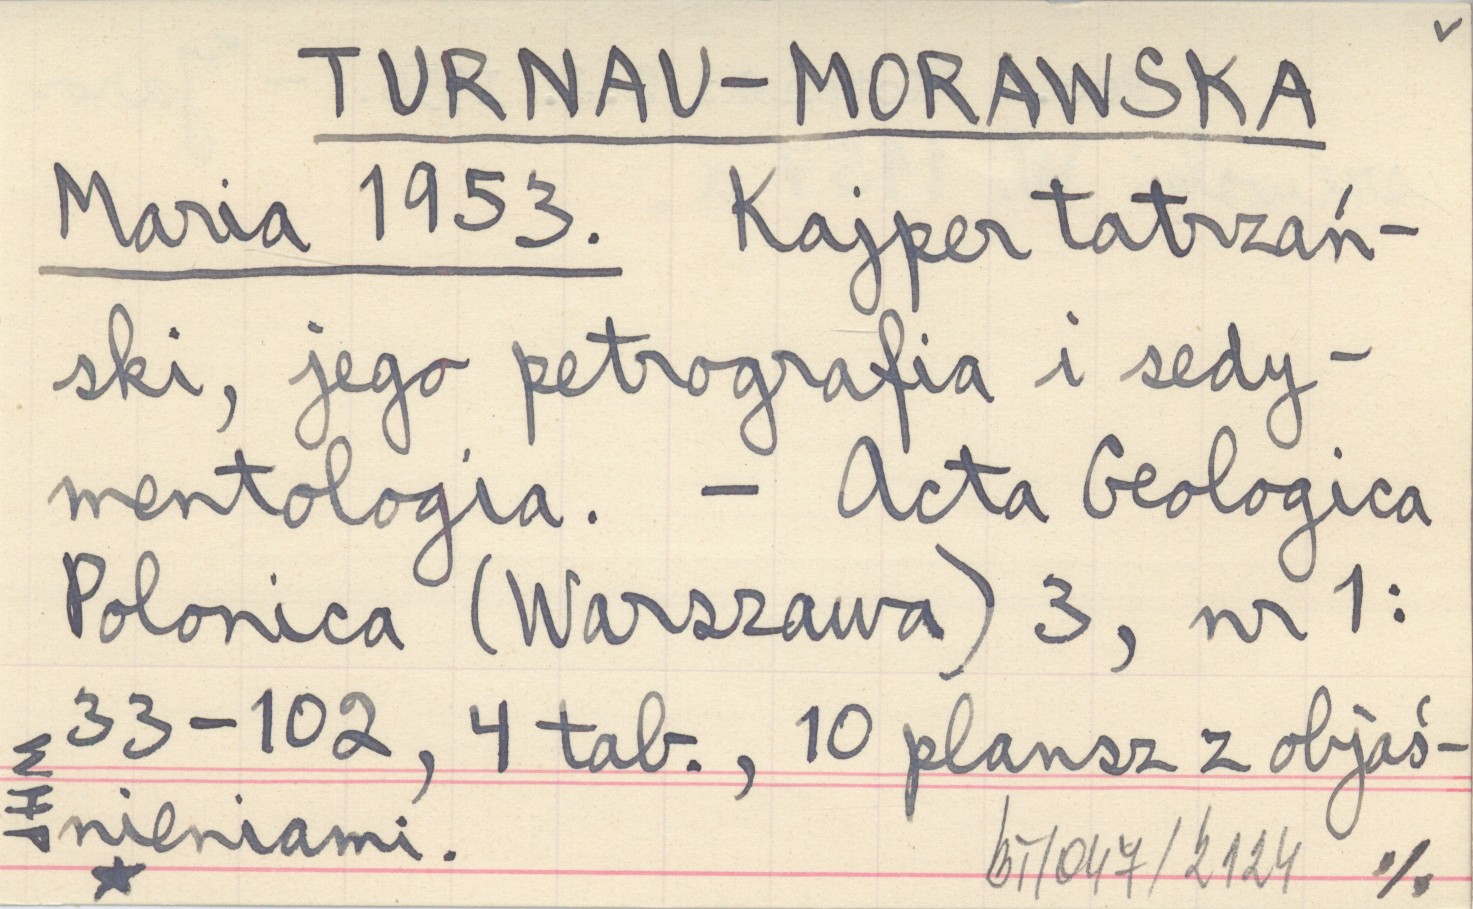 TURNAU-MORAWSKA
Maria 1953. Kajper tatrzań-
ski, jego petrografia i sedy-
mentologia. - Acta Geologica
Polonica (Warszawa) 3, nr 1:
33-102, 4 tab., 10 plansz z objaś-
nieniami.
WHP
/047/2124
·/.